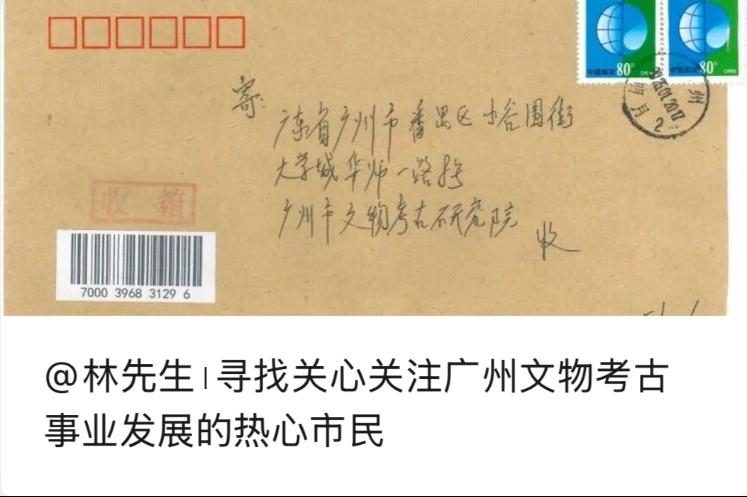 中国邮政 80分 CHINA
中国邮政 80分 CHINA
寄：
广东省广州市番禺区小谷围街
大学城华师一路8号
广州市文物考古研究院
收
收 箱
7000 3968 3129 6
@林先生|寻找关心关注广州文物考古
事业发展的热心市民